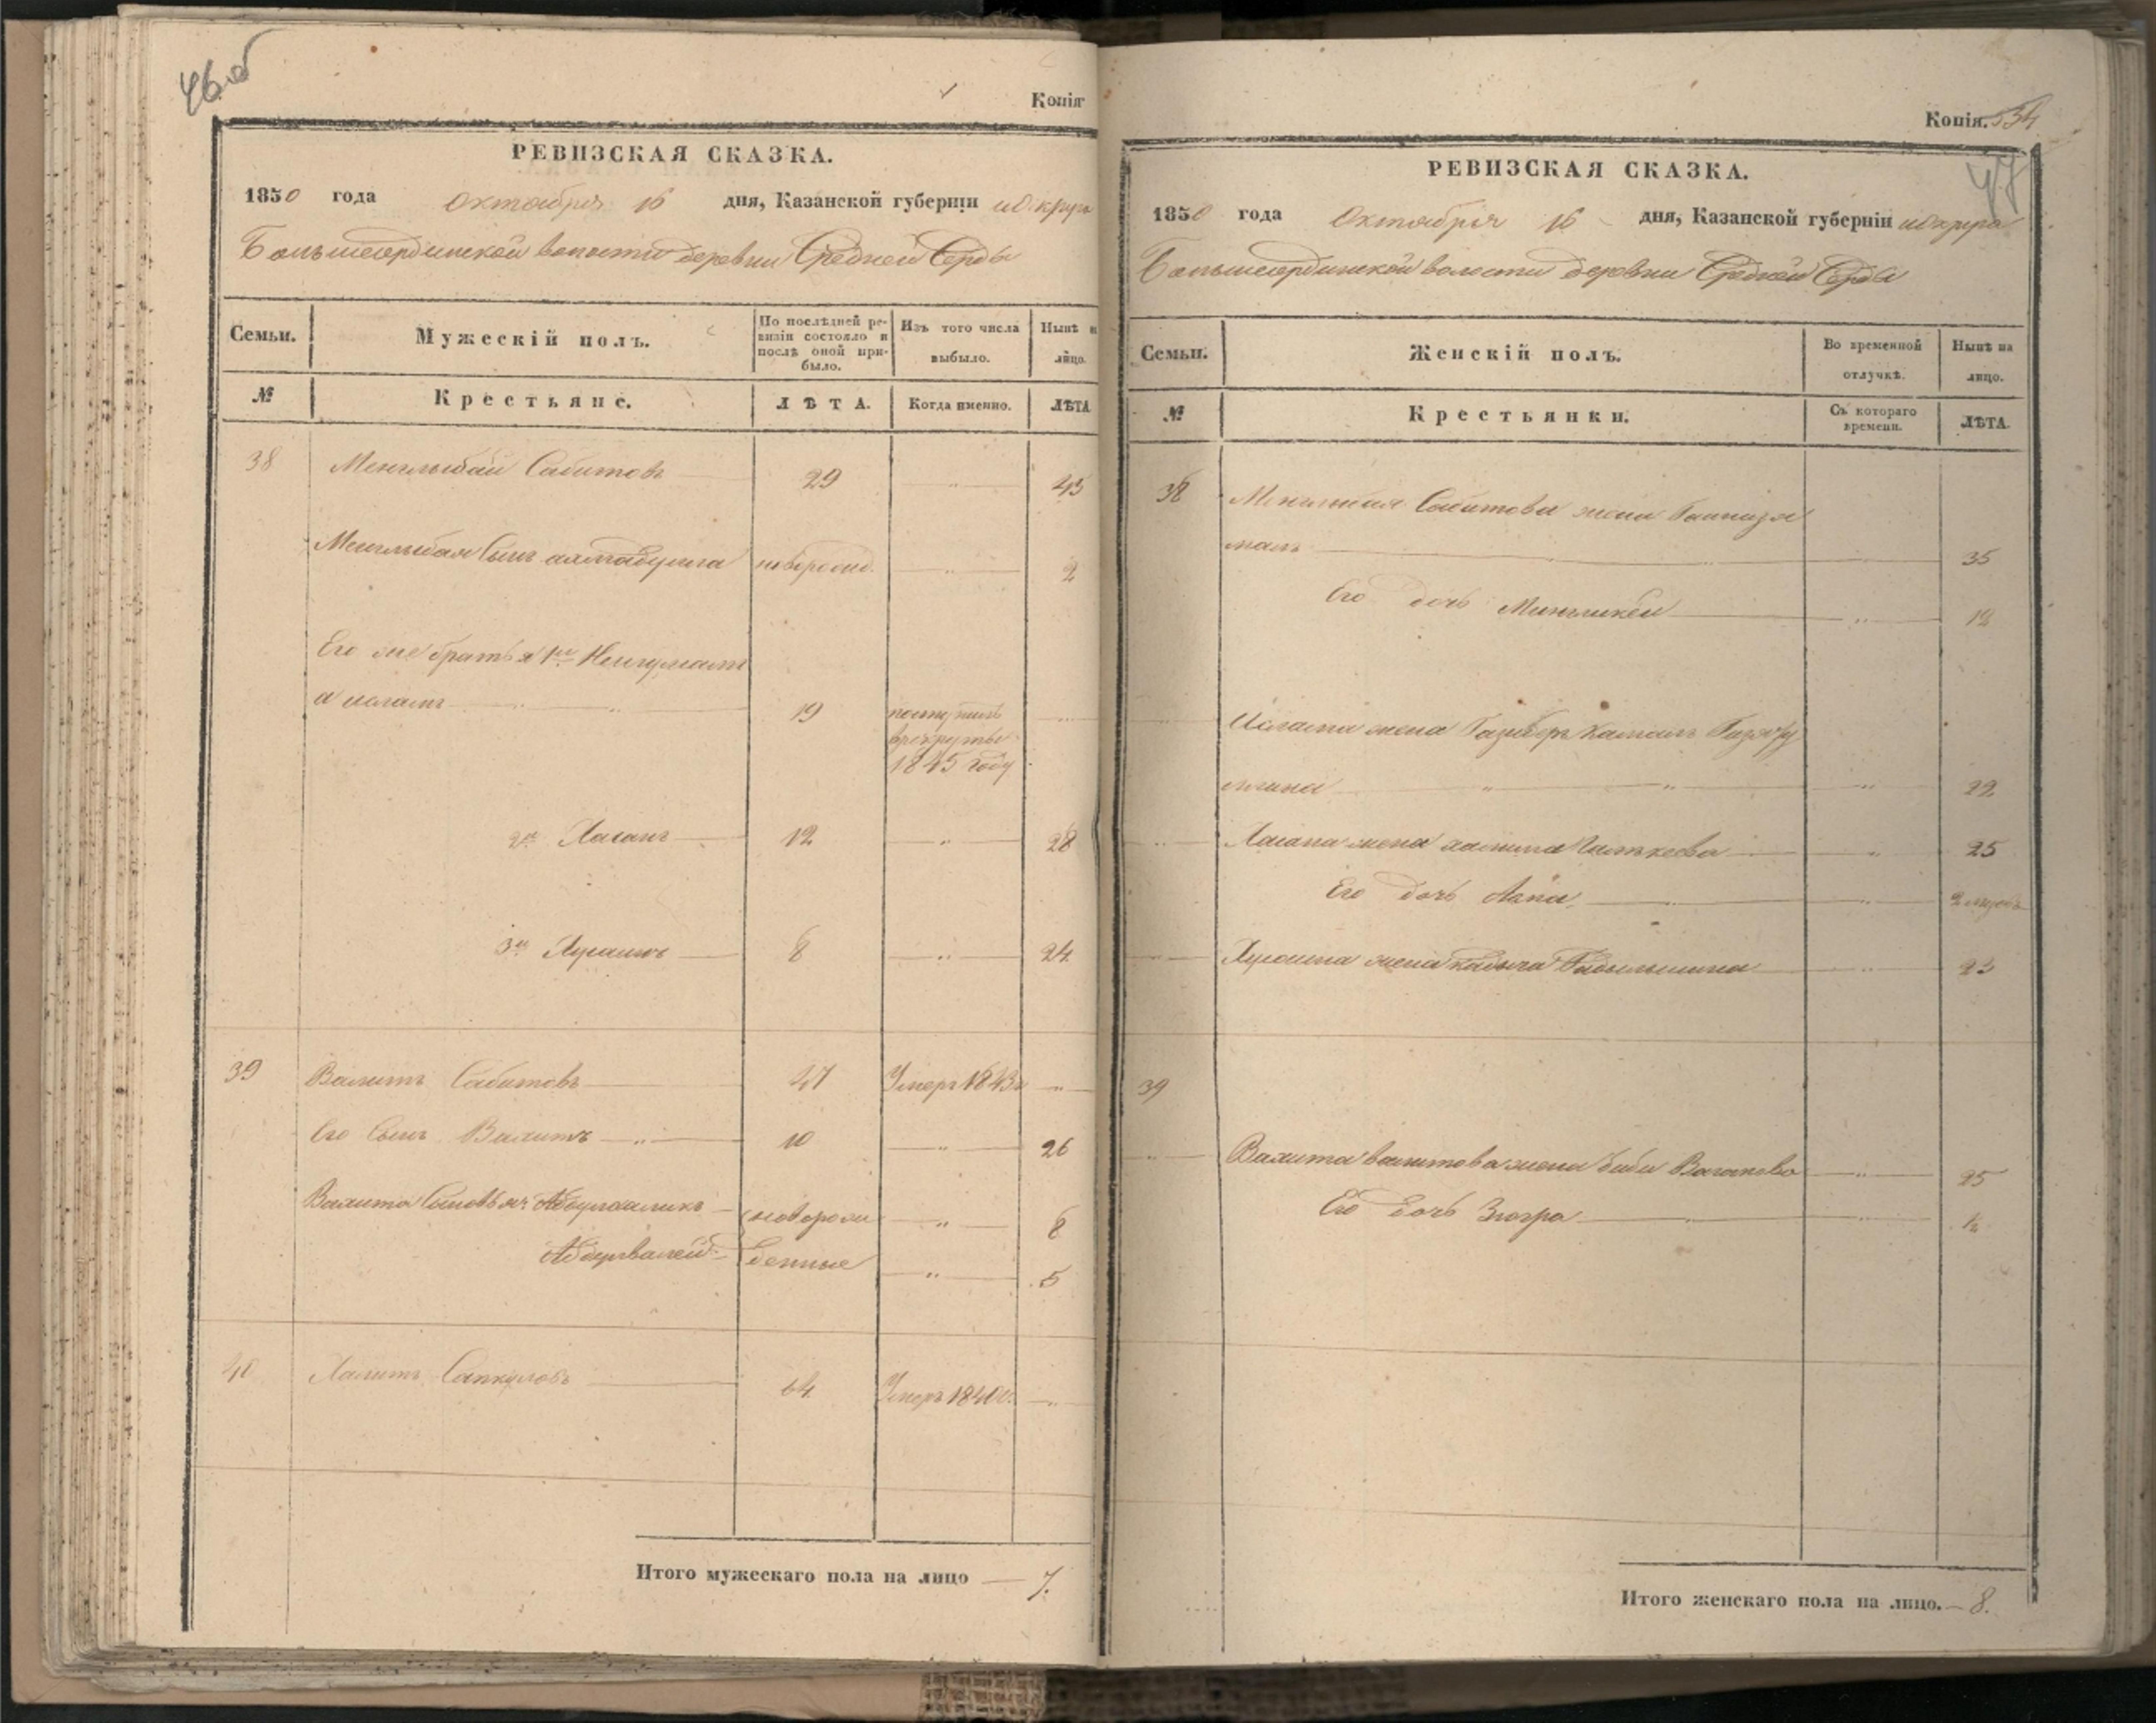 46 об
Копія
РЕВИЗСКАЯ СКАЗКА.
1850 года октября 16 дня, Казанской губерніи и округа
Большесердинской волости деревни Средней Серды
Семьи.
Мужескій полъ.
По послѣдней ре-
визіи состояло и
послѣ оной при-
было.
Изъ того числа
выбыло.
Нынѣ на
лицо.
№
Крестьяне.
ЛѢТА.
Когда именно.
ЛѢТА
38 Менглыбай Сабитовъ 29 45
Менглыбая сынъ новорожд. 2
Его же братья 1й
19 поступилъ
в рекруты
1845 году
2й Хасанъ 12 28
3й Хусаинъ 8 24
39 Валитъ Сабитовъ 47 Умеръ 1843
Его сынъ Вахитъ 10 26
Вахита сыновья: Абдулхаликъ новорож 8
Абдулвалей денные 5
40 Халитъ Сапкуловъ 64 Умеръ 1840
Итого мужескаго пола на лицо 7.
Копія. 534
47
РЕВИЗСКАЯ СКАЗКА.
1850 года Октября 16 дня, Казанской губерніи и округа
Большесердинской волости деревни Средней Серды
Семьи.
Женскій полъ.
Во временной
отлучкѣ.
Нынѣ на
лицо.
№
Крестьянки.
Съ котораго
времени.
ЛѢТА.
38 Менглыбая Сабитова жена
малъ 35
Его дочь Мингликей 12
жена Камалъ
22
Хасана жена 25
Его дочь 2 
Хусаина жена 23
39
Вахита Валитова жена Биби 25
Его дочь Зюгра ½
Итого женскаго пола на лицо. 8.